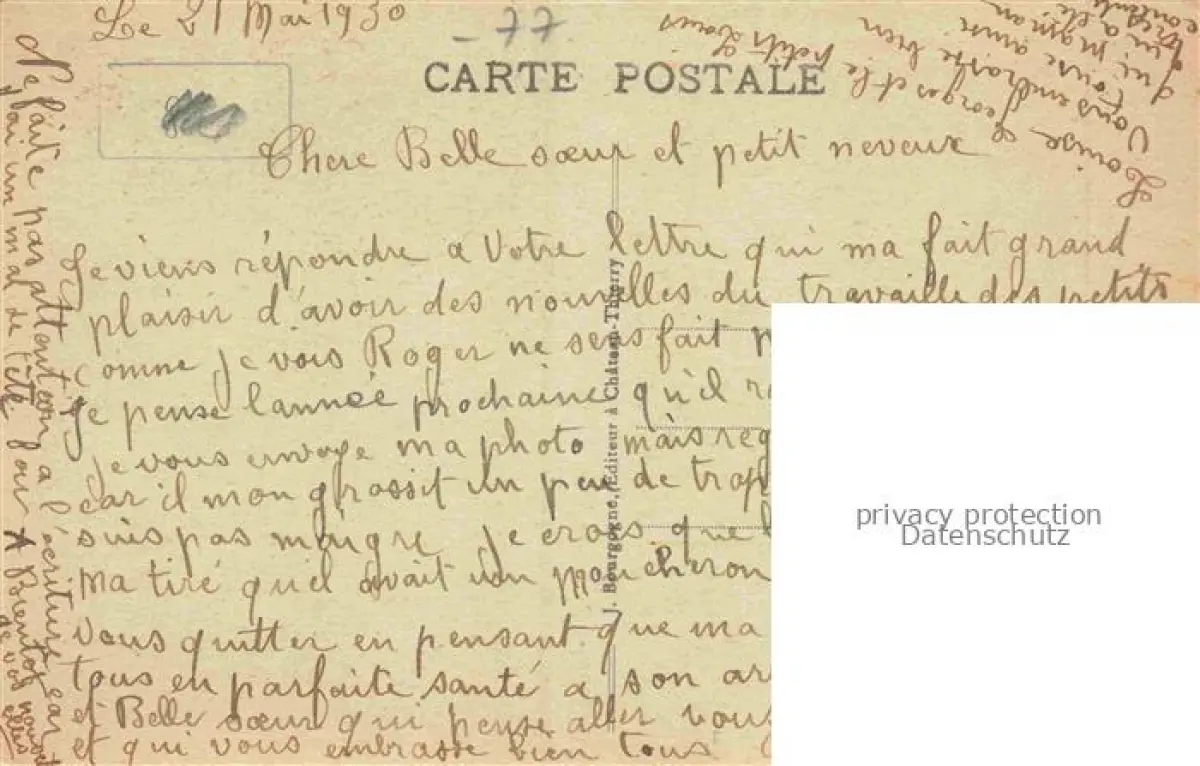 Le 21 Mai 1930
- 77
CARTE POSTALE
Chere Belle sœur et petit neveux
Je viens répondre a Votre lettre qui ma fait grand
plaisir d'avoir des nouvelles du travaille des petits
comme je vois Roger ne sens fait
je pense lannéé prochaine qu'il
je vous envoye ma photo mais
car il mon grossit un peu de trop
suis pas maigre je crois que
ma tiré qu'il avait un moucheron
Vous quitter en pensant que ma
tous en parfaite santé a son
et Belle sœur qui pense aller vous
et qui vous embrasse bien tous
Louise Georges et le petits Louis
Vous embrasse bien
Ne faite pas attention a l'écriture car
j'ai un mal de tête fou A Bientot
de vos nouvelles
J. Bourgogne, Editeur à Château-Thierry
privacy protection
Datenschutz